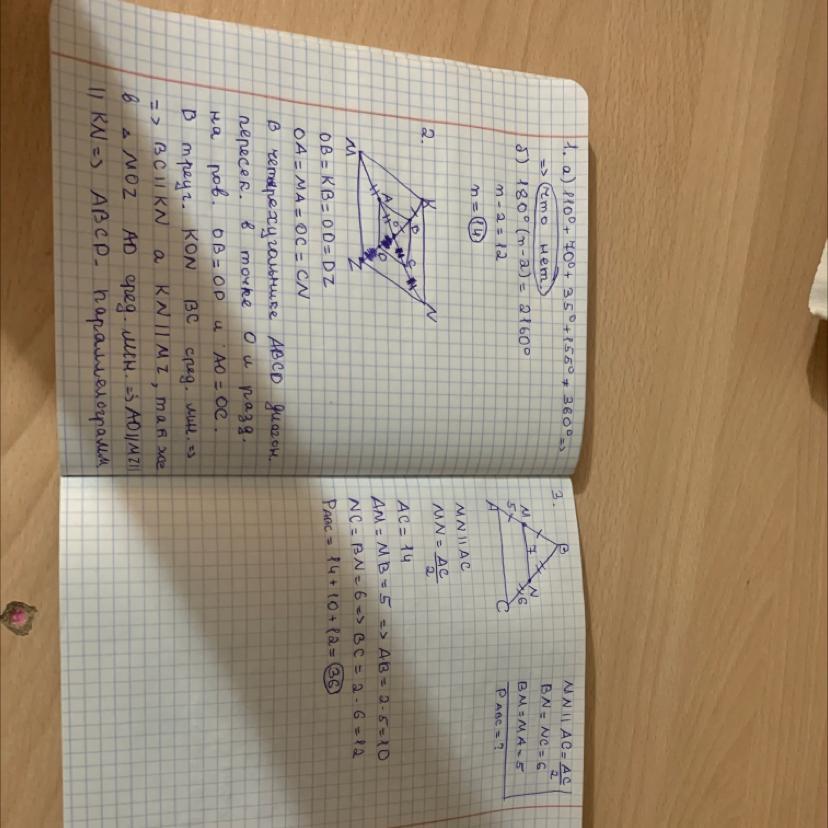 1. а) 110° + 70° + 35° + 155° ≠ 360° =>
=> что нет
б) 180° (n-2) = 2160°
n-2 = 12
n = 14
2.
K
N
B
C
O
A
D
M
Z
OB = KB = OD = DZ
OA = MA = OC = CN
В четырехугольнике ABCD диагон.
пересек. в точке O и разд.
на ров. OB = OD и AO = OC.
В треуг. KON BC сред. лин. =>
=> BC || KN а KN || MZ, так же
в △ MOZ AD сред. лин. => AD || MZ ||
|| KN => ABCD - параллелограмм
3.
B
M
5
7
N
6
A
C
MN || AC = AC/2
BN = NC = 6
BM = MA = 5
P ABC = ?
MN || AC
MN = AC/2
AC = 14
AM = MB = 5 => AB = 2·5 = 10
NC = BN = 6 => BC = 2·6 = 12
P ABC = 14 + 10 + 12 = 36